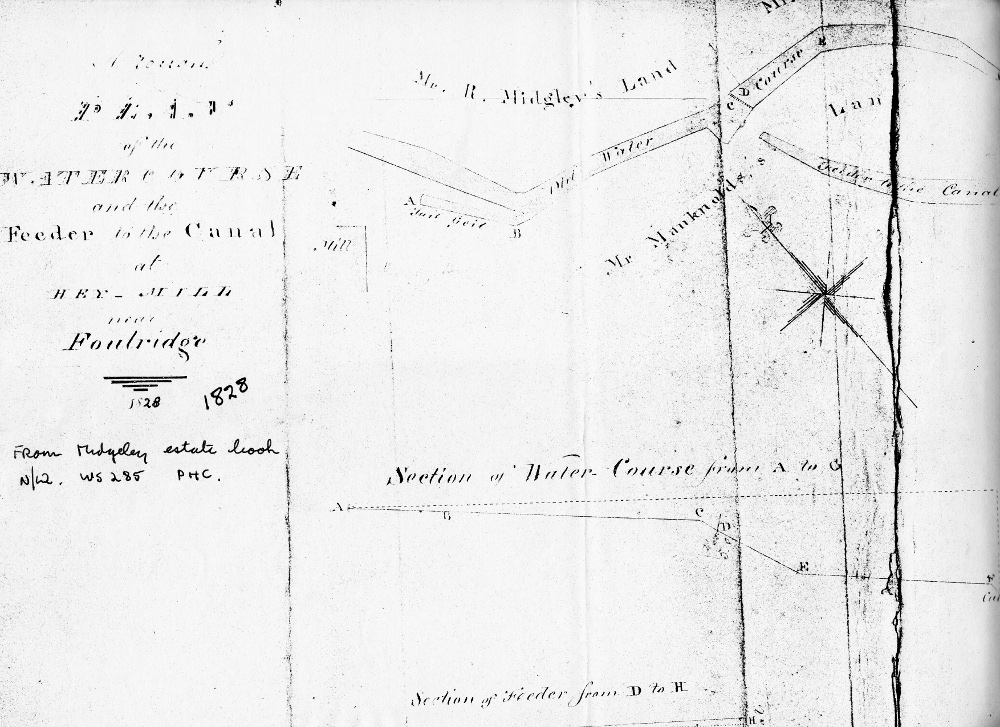 of the
WATER COURSE
and the
Feeder to the Canal
at
HEY-MILL
near
Foulridge
1828
1828
From Midgeley estate book
N/W. WS 285 PHC.
Mr. R. Midgley's Land
Old Water Course
A
Tail Goit
B
C
D
E
Mill
Mr Manknolds's
Lan
Feeder to the Canal
Section of Water-Course from A to G
A
B
C
D
E
Section of Feeder from D to H
H